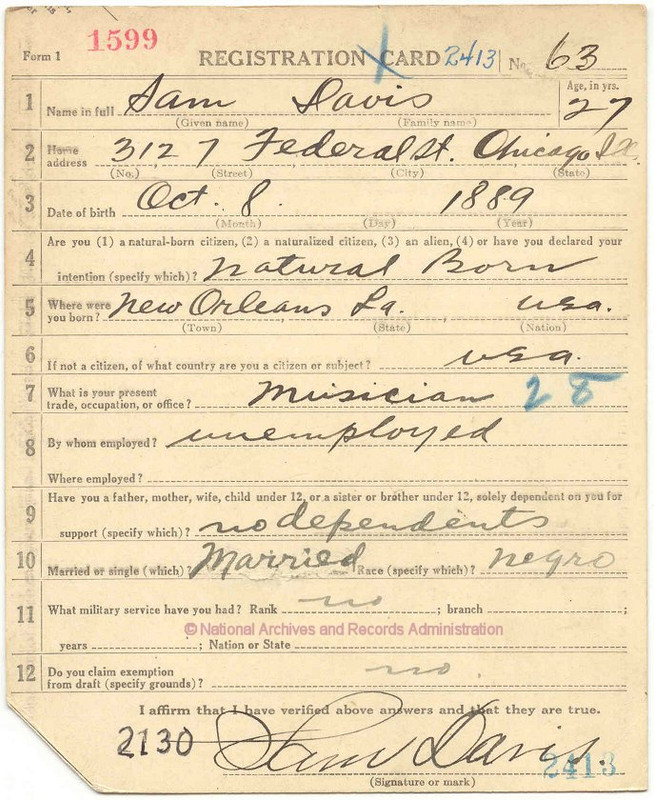 Form 1 1599 REGISTRATION CARD 2413 No. 63
1 Name in full Sam Davis Age, in yrs. 27
(Given name) (Family name)
2 Home address 3127 Federal St. Chicago Ill.
(No.) (Street) (City) (State)
3 Date of birth Oct. 8. 1889
(Month) (Day) (Year)
4 Are you (1) a natural-born citizen, (2) a naturalized citizen, (3) an alien, (4) or have you declared your
intention (specify which)? Natural Born
5 Where were you born? New Orleans La. usa.
(Town) (State) (Nation)
6 If not a citizen, of what country are you a citizen or subject? usa.
7 What is your present trade, occupation, or office? Musician 28
8 By whom employed? unemployed
Where employed?
9 Have you a father, mother, wife, child under 12, or a sister or brother under 12, solely dependent on you for
support (specify which)? no dependents
10 Married or single (which)? Married Race (specify which)? negro
11 What military service have you had? Rank no ; branch ;
© National Archives and Records Administration
years ; Nation or State
12 Do you claim exemption from draft (specify grounds)? no.
I affirm that I have verified above answers and that they are true.
2130 Sam Davis. 2413
(Signature or mark)